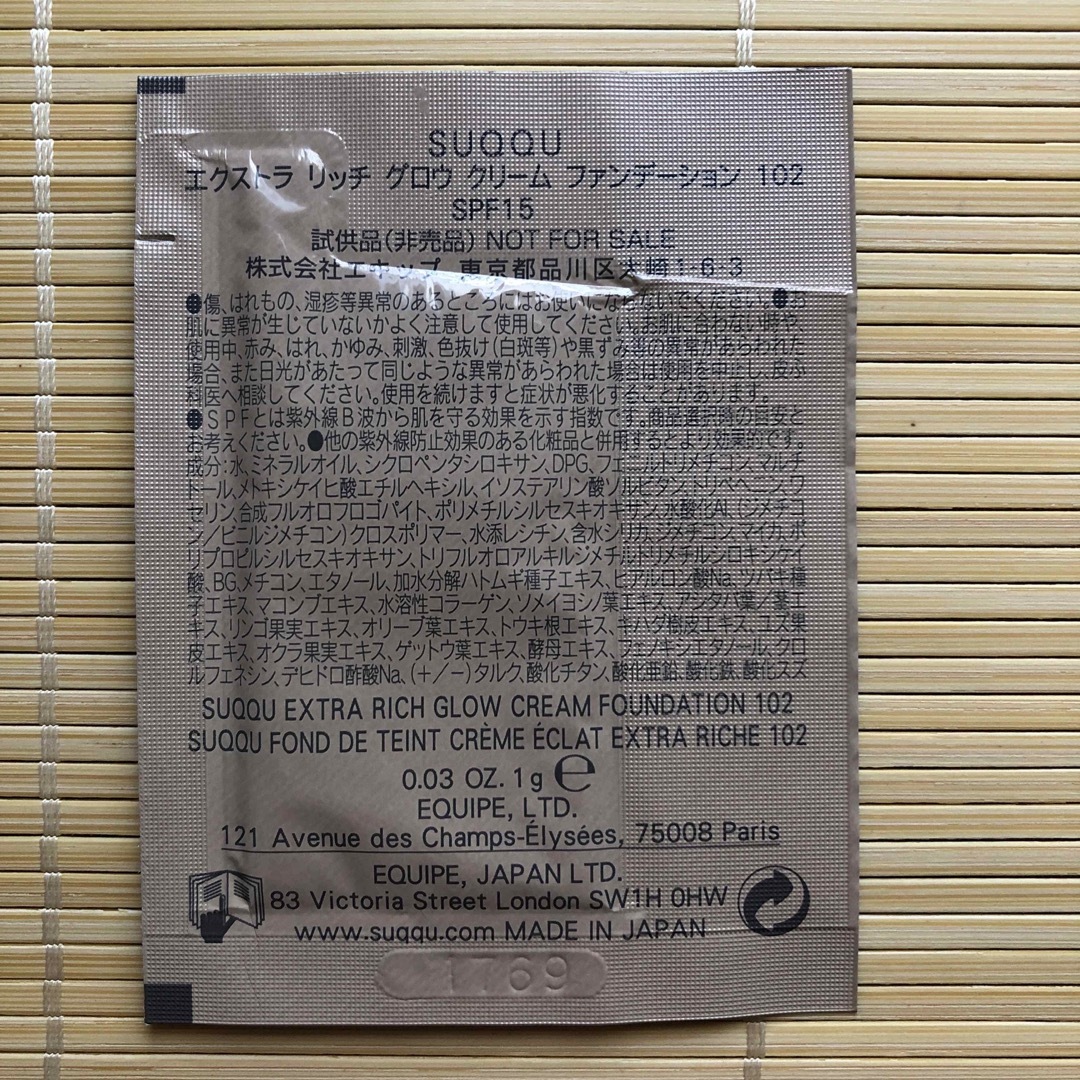 SUQQU
エクストラ リッチ グロウ クリーム ファンデーション 102
SPF15
試供品(非売品) NOT FOR SALE
株式会社エキップ 東京都品川区大崎1-6-3
●傷、はれもの、湿疹等異常のあるところにはお使いにならないでください。●お
肌に異常が生じていないかよく注意して使用してください。お肌に合わない時や、
使用中、赤み、はれ、かゆみ、刺激、色抜け(白斑等)や黒ずみ等の異常があらわれた
場合、また日光があたって同じような異常があらわれた場合は使用を中止し、皮ふ
科医へ相談してください。使用を続けますと症状が悪化することがあります。
●SPFとは紫外線B波から肌を守る効果を示す指数です。商品選択時の目安と
お考えください。●他の紫外線防止効果のある化粧品と併用するとより効果的です。
成分:水、ミネラルオイル、シクロペンタシロキサン、DPG、フェニルトリメチコン、マルチ
トール、メトキシケイヒ酸エチルヘキシル、イソステアリン酸ソルビタン、トリベヘニン、ワ
セリン、合成フルオロフロゴパイト、ポリメチルシルセスキオキサン、水酸化Al、(ジメチコ
ン/ビニルジメチコン)クロスポリマー、水添レシチン、含水シリカ、ジメチコン、マイカ、ポ
リプロピルシルセスキオキサン、トリフルオロアルキルジメチルトリメチルシロキシケイ
酸、BG、メチコン、エタノール、加水分解ハトムギ種子エキス、ヒアルロン酸Na、ツバキ種
子エキス、マコンブエキス、水溶性コラーゲン、ソメイヨシノ葉エキス、アシタバ葉/茎エ
キス、リンゴ果実エキス、オリーブ葉エキス、トウキ根エキス、キハダ樹皮エキス、ユズ果
皮エキス、オクラ果実エキス、ゲットウ葉エキス、酵母エキス、フェノキシエタノール、クロ
ルフェネシン、デヒドロ酢酸Na、(+/−)タルク、酸化チタン、酸化亜鉛、酸化鉄、酸化スズ
SUQQU EXTRA RICH GLOW CREAM FOUNDATION 102
SUQQU FOND DE TEINT CRÈME ÉCLAT EXTRA RICHE 102
0.03 OZ. 1g ℮
EQUIPE, LTD.
121 Avenue des Champs-Élysées, 75008 Paris
EQUIPE, JAPAN LTD.
83 Victoria Street London SW1H 0HW
www.suqqu.com MADE IN JAPAN
1769